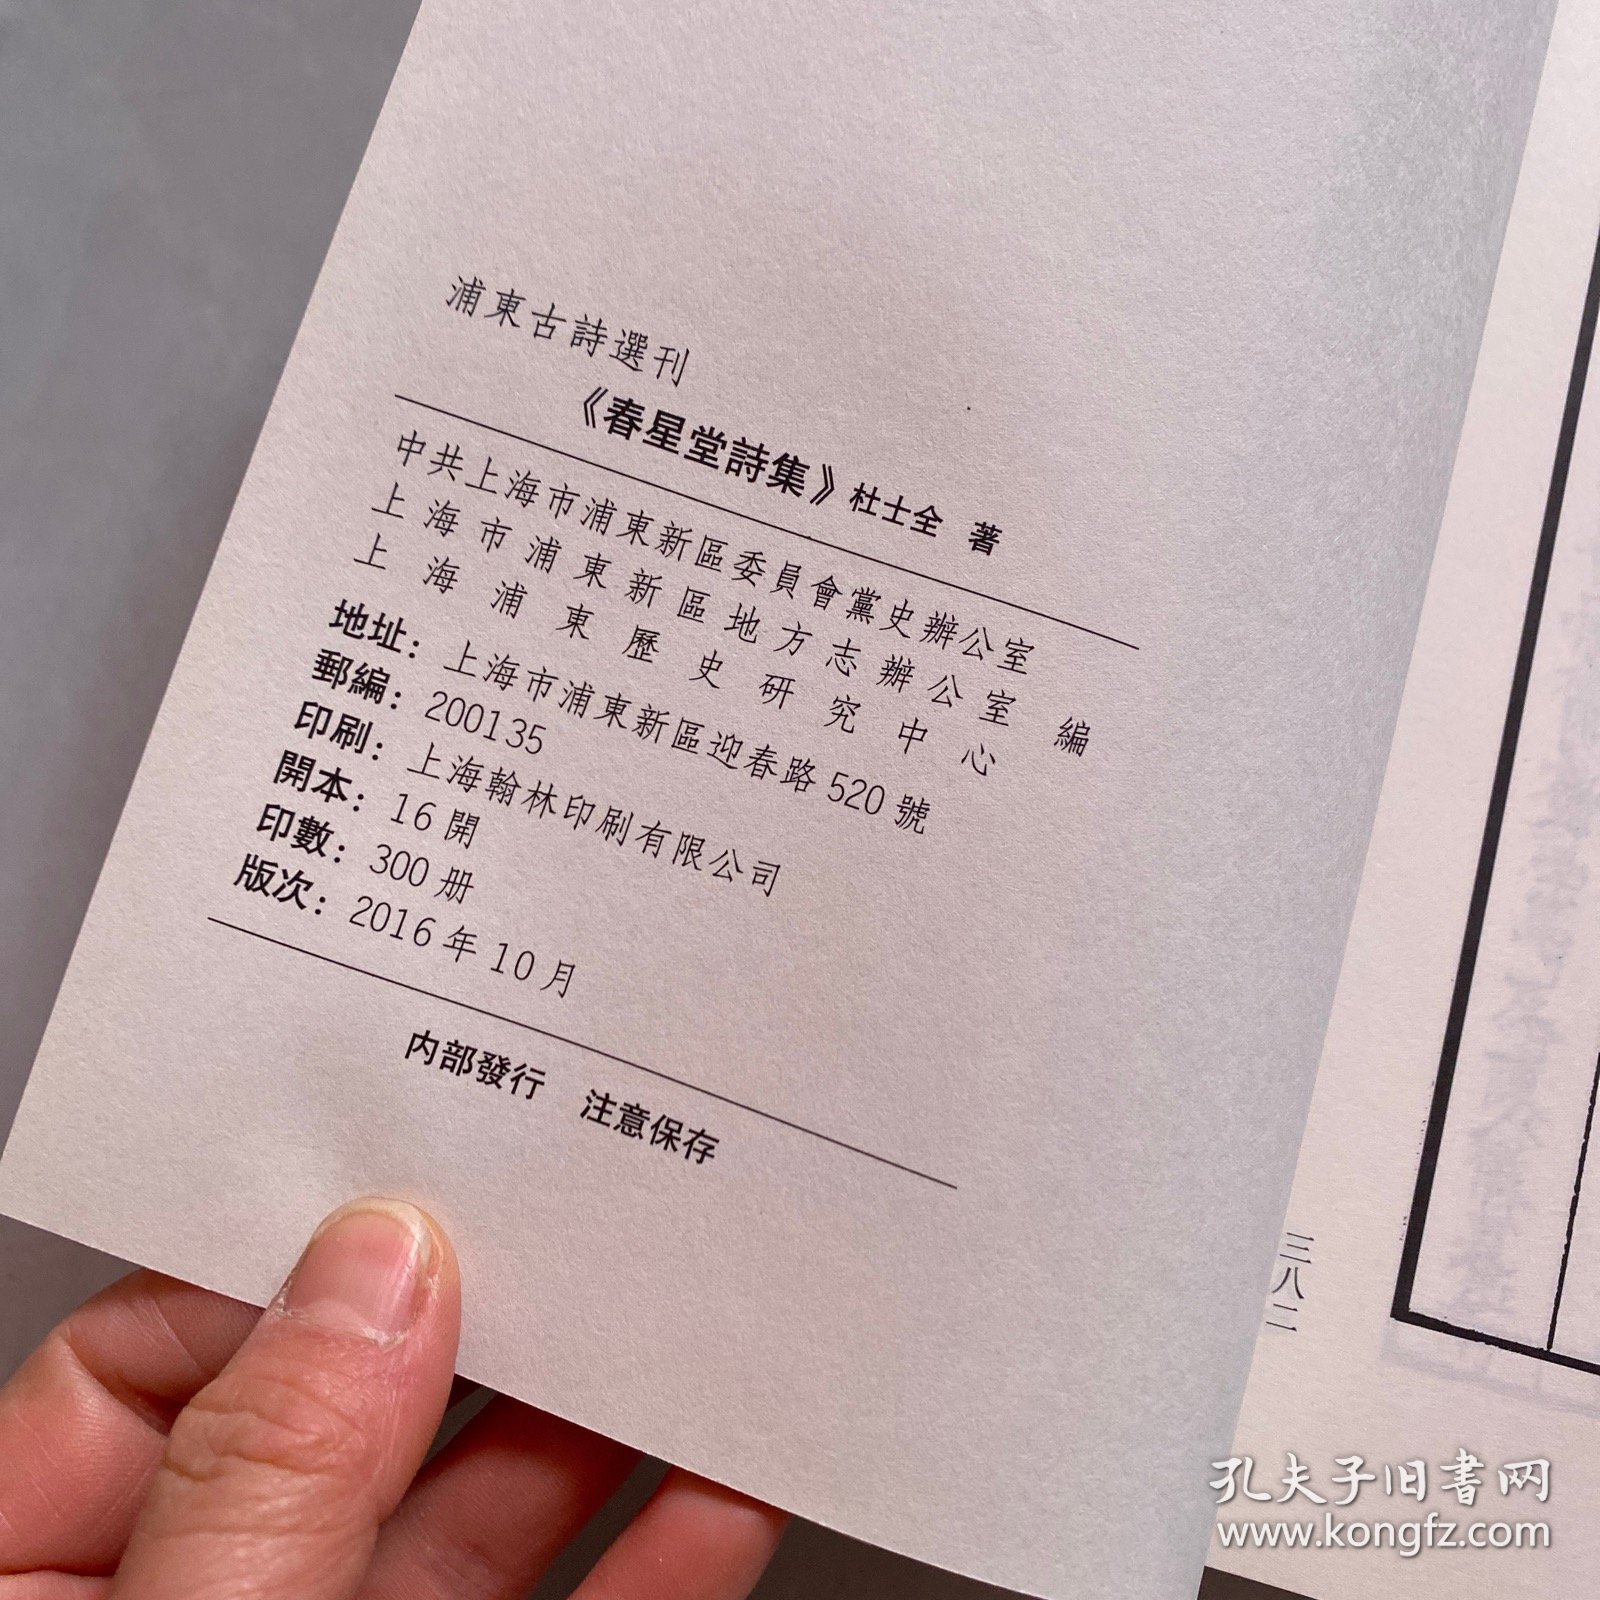 浦東古詩選刊
《春星堂詩集》杜士全 著
中共上海市浦東新區委員會黨史辦公室
上海市浦東新區地方志辦公室 編
上海浦東歷史研究中心
地址：上海市浦東新區迎春路 520 號
郵編：200135
印刷：上海翰林印刷有限公司
開本：16 開
印數：300 册
版次：2016 年 10 月
内部發行 注意保存
三八二
孔夫子旧書网
www.kongfz.com